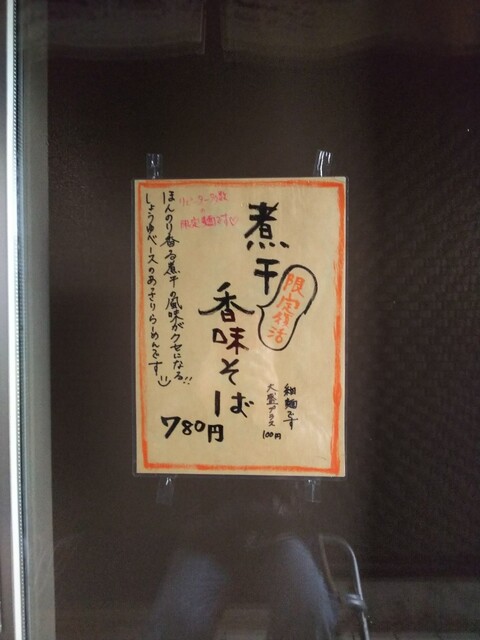 煮干
香味そば
限定復活
細麺です
大盛プラス
100円
780円
リピーター多数
の
限定麺です♡
ほんのり香る煮干の風味がクセになる!!
しょうゆベースのあっさりらーめんです